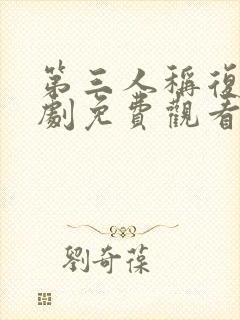 第三人稱復
劇免費觀看
劉奇葆